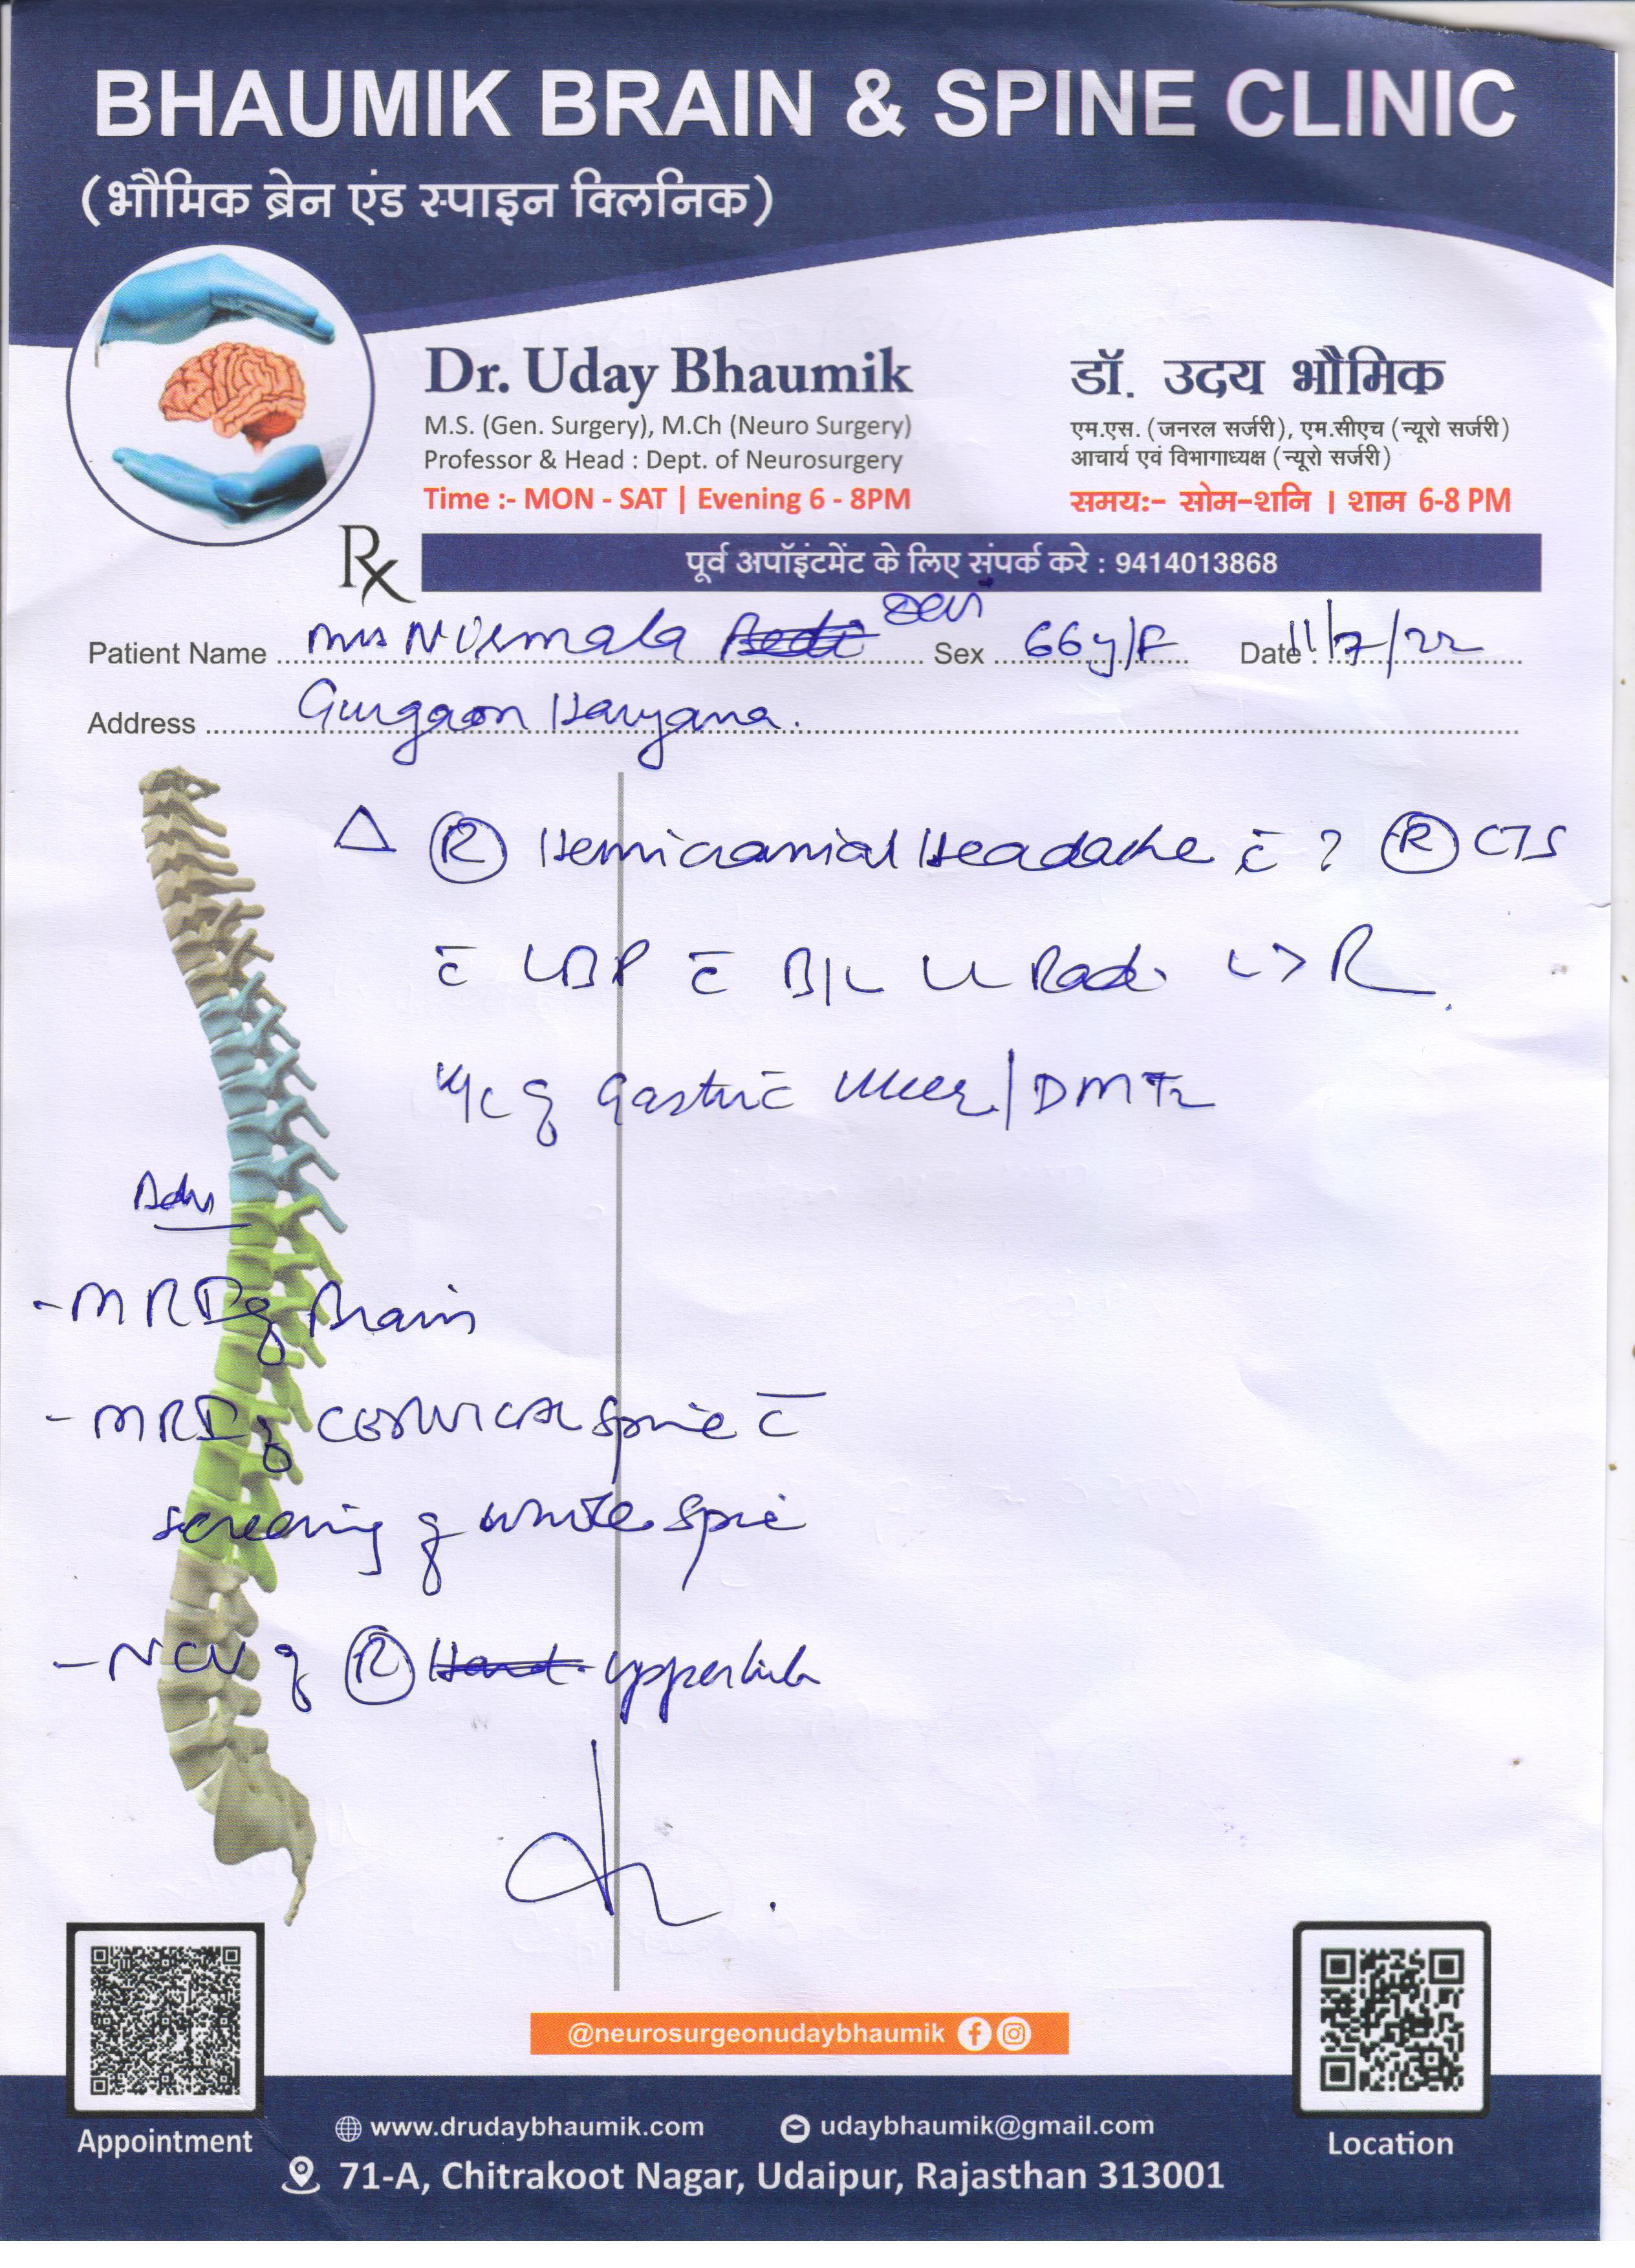 BHAUMIK BRAIN & SPINE CLINIC
(भौमिक ब्रेन एंड स्पाइन क्लिनिक)
Dr. Uday Bhaumik
M.S. (Gen. Surgery), M.Ch (Neuro Surgery)
Professor & Head : Dept. of Neurosurgery
Time :- MON - SAT | Evening 6 - 8PM
डॉ. उदय भौमिक
एम.एस. (जनरल सर्जरी), एम.सीएच (न्यूरो सर्जरी)
आचार्य एवं विभागाध्यक्ष (न्यूरो सर्जरी)
समय:- सोम-शनि | शाम 6-8 PM
Rx
पूर्व अपॉइंटमेंट के लिए संपर्क करे : 9414013868
Patient Name Mrs Nirmala Devi Sex 66y/F Date : 11/7/22
Address Gurgaon Haryana.
Δ (R) Hemicranial Headache c̄ ? (R) CTS
c̄ LBP c̄ B/L LL Radi. L>R
H/c of Gastric Ulcer/DM T2
Adv
- MRI of Brain
- MRI of Cervical Spine c̄
screening of whole spine
- NCV of (R) upper limb
@neurosurgeonudaybhaumik
Appointment
www.drudaybhaumik.com udaybhaumik@gmail.com
71-A, Chitrakoot Nagar, Udaipur, Rajasthan 313001
Location